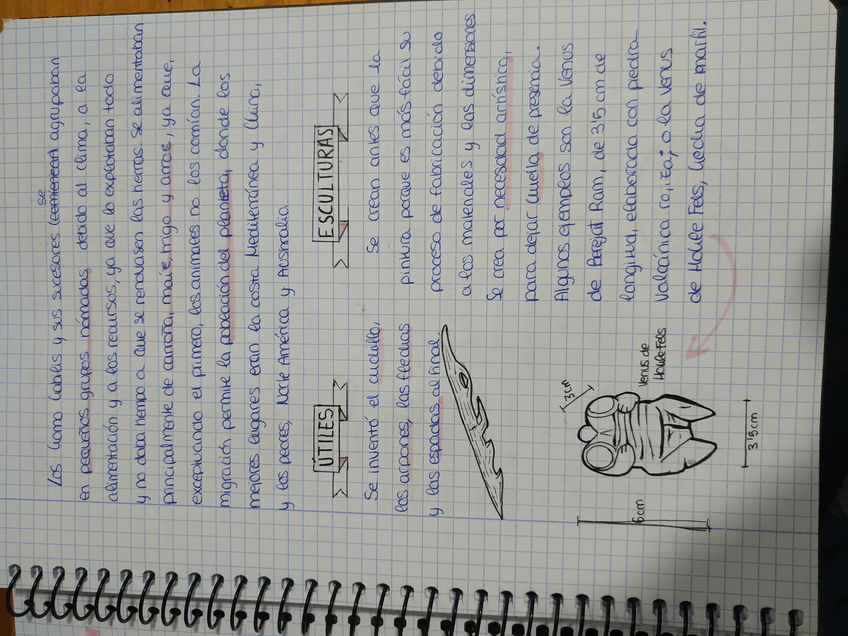 Los Homo Habilis y sus sucesores (comienzan) se agrupaban
en pequeños grupos nómadas debido al clima, a la
alimentación y a los recursos, ya que lo explotaban todo
y no daba tiempo a que se renovasen las tierras. Se alimentaban
principalmente de zanahoria, maíz, trigo y arroz, ya que,
exceptuando el primero, los animales no los comían. La
migración permite la población del planeta, donde los
mejores lugares eran la costa Mediterránea y China,
y los peores, Norte América y Australia.
ÚTILES
Se inventó el cuchillo,
los arpones, las flechas
y las espadas al final.
ESCULTURAS
Se crean antes que la
pintura porque es más fácil su
proceso de fabricación debido
a los materiales y las dimensiones.
Se crea por necesidad artística,
para dejar huella de presencia.
Algunos ejemplos son la Venus
de Berejat Ram, de 3'5 cm de
longitud, elaborada con piedra
volcánica rojiza; o la Venus
de Hohle Fels, hecha de marfil.
3cm
Venus de
Hohle Fels
6cm
3'5cm